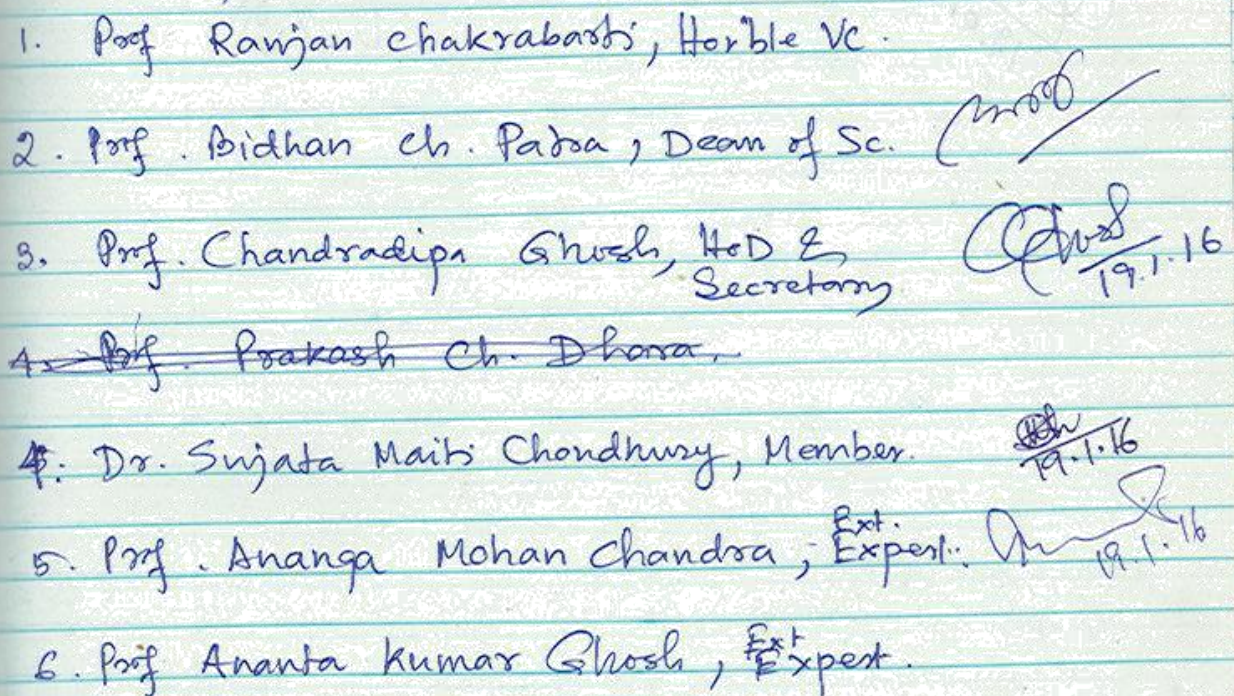 1. Prof Ranjan Chakrabarti, Hon'ble VC.
2. Prof. Bidhan Ch. Patra, Dean of Sc.
3. Prof. Chandradipa Ghosh, HoD &
Secretary
19.1.16
4. Prof. Prakash Ch. Dhara.
4. Dr. Sujata Maiti Choudhury, Member.
19.1.16
5. Prof. Ananga Mohan Chandra, Ext. Expert.
19.1.16
6. Prof Ananta Kumar Ghosh, Ext Expert.